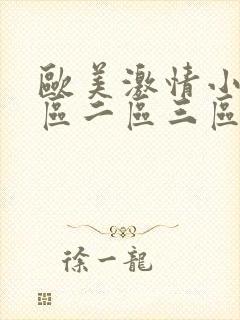 歐美激情小
區二區三區
徐一龍